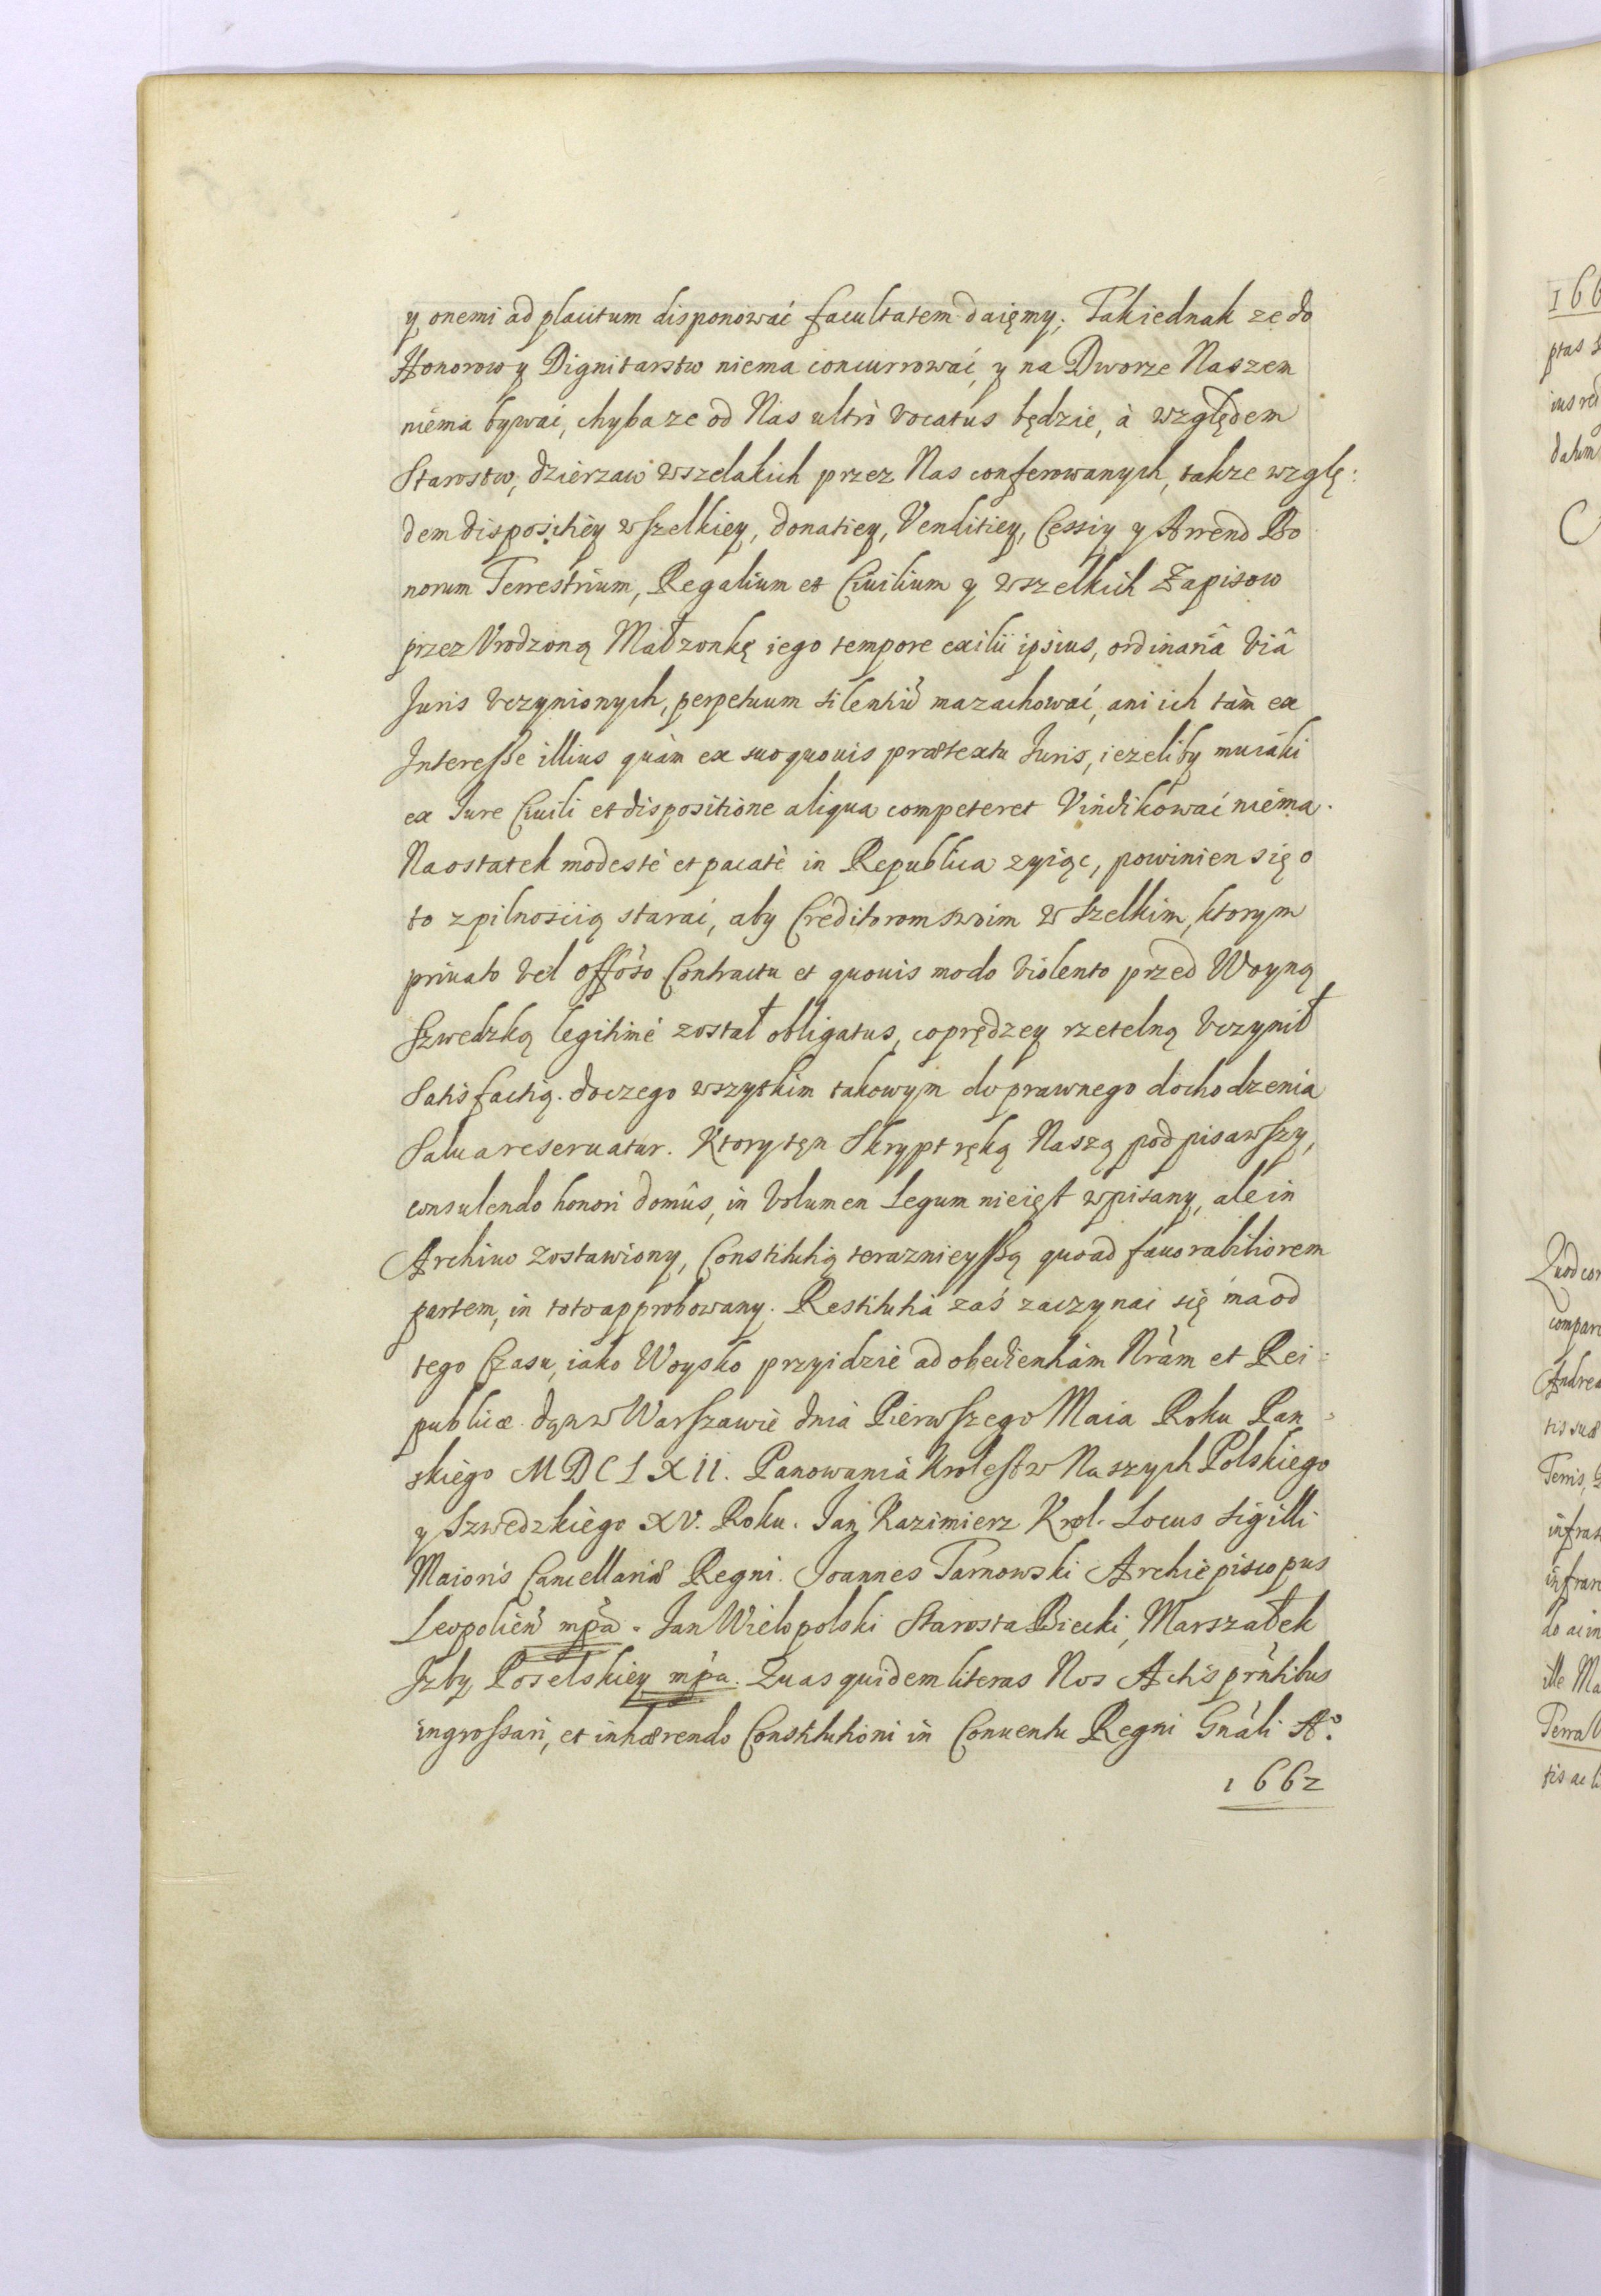 y onemi ad placitum disponować facultatem daięmy; Tak iednak ze do
Honorow y Dignitarstw niema concurrować, y na Dworze Naszem
niéma bywać, chyba ze od Nas ultrò vocatus będzie, à względem
Starostw, dzierzaw wszelakich przez Nas conferowanych, takze wzglę:
dem dispositiėy wszelkiey, donatiey, Venditiey, Cessiy y Arrend Bo
norum Terrestrium, Regalium et Ciuilium y wszelkich Zapisow
przez Vrodzoną Małzonkę iego tempore exilii ipsius, ordinariâ viâ
Juris vczynionych, perpetuum silentiũ ma zachować, ani ich tàm ex
Interesse illius quàm ex suo quouis prætextu Iuris, iezeliby mu iáki
ex Iure Ciuili et dispositione aliqua competeret Vindikować niéma.
Na ostatek modestè et pacatè in Republica zyiąc, powinien się o
to z pilnoscią starać, aby Creditorom swoim wszelkim, ktorym
priuato vel offoso Contractu et quouis modo violento przed Woyną
Szwedzką legitimè został obligatus, coprędzey rzetelną vczynił
Satisfactią. do czego wszytkim takowym do prawnego dochodzenia
Salua reseruatur. Ktory tęn Skrypt ręką Naszą podpisawszy,
consulendo honori domûs, in Volumen Legum nieięst wpisany, ale in
Archiuo zostawiony, Constitutią teraznieyszą quoad fauorabiliorem
partem, in toto approbowany. Restitutia zaś zaczynać się ma od
tego Czasu, iako Woysko przyidzie ad obedientiam Nràm et Rei:
publicæ. dąn w Warszawie dnia Pierwszego Maia Roku Pan
skiégo MDCLXII. Panowania Krolestw Naszych Polskiego
y Szwedzkiégo XV. Roku. Jan Kazimierz Krol. Locus Sigilli
Maioris Cancellariæ Regni. Joannes Tarnowski Archiepiscopus
Leopolień mpã. Jan Wielopolski Starosta Biecki, Marszałek
Jzby Poselskiey mpa. Quas quidem literas Nos Actis prńtibus
ingrossari, et inhærendo Constitutioni in Conuentu Regni Gnáli Aº.
1662